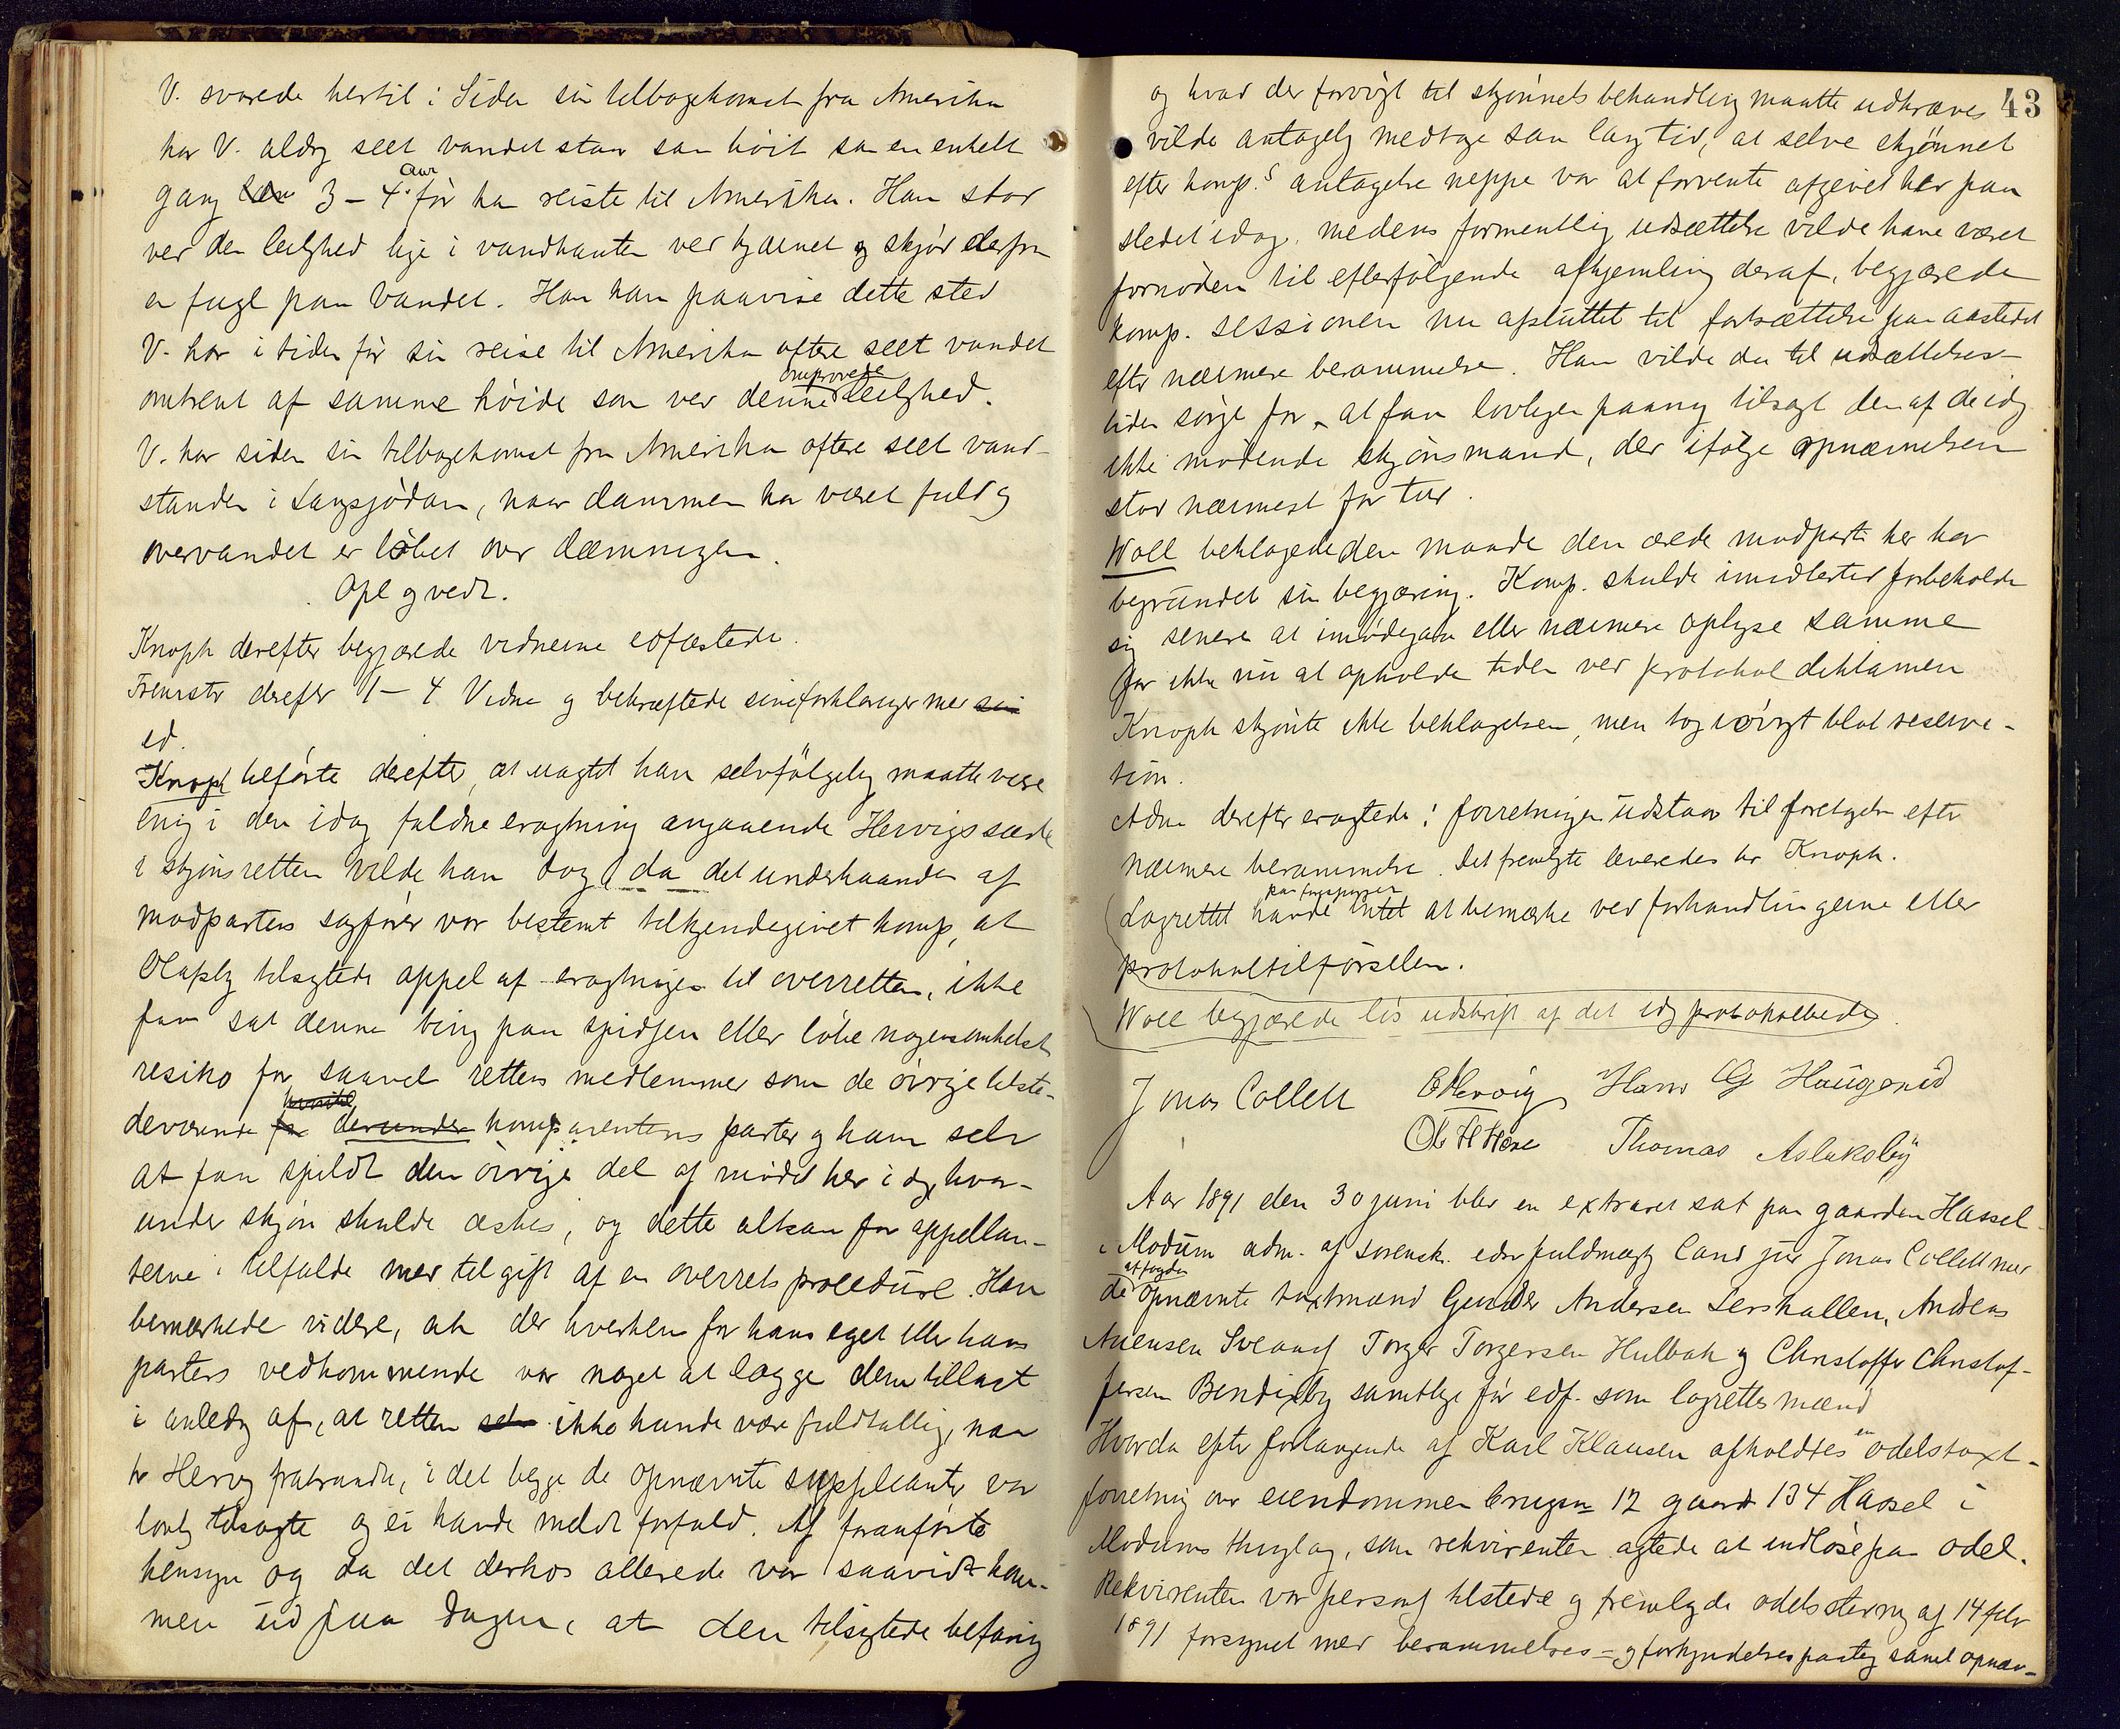 V. svarede hertil: Siden sin tilbagekomst fra Amerika
har V. aldrig seet vandet staa saa høit som en enkelt
gang 3-4 aar før han reiste til Amerika. Han stod
ved den leilighed lige i vandkanten ved tjernet og skjød derfra
en fugl paa vandet. Han kan paavise dette sted
V. har i tiden før sin reise til Amerika oftere seet vandet
omtrent af samme høide som ved denne omprovede leilighed.
V. har siden sin tilbagekomst fra Amerika oftere seet vand-
standen i Langsjødam, naar dammen har været fuld og
overvandet er løbet over dæmningen.
Opl og vedt.
Knoph derefter begjærede vidnerne edfæstede.
Fremstod derefter 1-4 Vidne og bekræftede sine forklaringer med sin
ed.
Knoph tilførte derefter, at uagtet han selvfølgelig maatte være
enig i den idag faldne eragtning angaaende Hervigs sæde
i skjønsretten vilde han dog, da det underhaanden af
modpartens sagfører var bestemt tilkjendegivet komp, at
Olafsby tilsigtede appel af eragtningen til overretten, ikke
faa sat denne ting paa spidsen eller løbe nogensomhelst
resiko for saavel rettens medlemmer som de øvrige tilste-
deværende for hvoriblandt derunder komparentens parter og ham selv
at faa spildt den øvrige del af mødet her i dag, hvor-
under skjøn skulde æskes, og dette altsaa for appellan-
terne i tilfælde med tilgift af en overrets procedure. Han
bemærkede videre, at der hverken for hans eget eller hans
parters vedkommende var noget at lægge dem tillast
i anledning af, at retten selv ikke kunde være fuldtallig, naar
hr Hervig fratraadte, i det begge de opnævnte suppleanter var
lovlig tilsagte og ei havde meldt forfald. Af foranførte
hensyn og da det derhos allerede var saavidt kom-
men ud paa dagen, at den tilsigtede befaring
43
og hvad der forøvrigt til skjønnets behandling maatte udkræves
vilde antagelig medtage saa lang tid, at selve skjønnet
efter komp.s antagelse neppe var at forvente afgivet her paa
stedet idag, medens formentlig udsættelse vilde have været
fornøden til efterfølgende afhjemling deraf, begjærede
komp. sessionen nu afsluttet til fortsættelse paa aastedet
efter nærmere berammelse. Han vilde da til udsættelses-
tiden sørge for at faa lovligen paany tilsagt den af de idag
ikke mødende skjønsmænd, der ifølge opnævnelsen
stod nærmest for tur.
Woll beklagede den maade den ærede modpart her har
begrundet sin begjæring. Komp. skulde imidlertid forbeholde
sig senere at imødegaa eller nærmere oplyse samme
for ikke nu at opholde tiden ved protokol diktamen
Knoph skjønte ikke beklagelsen, men tog iøvrigt blot reserva-
tion.
Adm derefter eragtede: forretningen udstaar til foretagelse efter
nærmere berammelse. Det fremlagte leveredes hr Knoph.
Lagrettet havde paa forespørgsel intet at bemærke ved forhandlingerne eller
protokoltilførselen.
Woll begjærede løs udskrift af det idag protokollerede.
Jonas Collett EHervig Hans G Haugerud
Ole H Hære Thomas Aslaksby
Aar 1891 den 30 juni blev en extraret sat paa gaarden Hassel
i Modum adm. af sorensk. edsv fuldmægtig Cand jur Jonas Collett med
de af fogden opnævnte taxtmænd Gunder Andersen Lershallen, Andreas
Amensen Sveaas Torger Torgersen Hulbak og Christoffer Christof-
fersen Bendixby samtlige før edf. som lagrettesmænd
Hvorda efter forlangende af Karl Klausen afholdtes en odelstaxt-
forretning over eiendommen brugsn 12 gaards 134 Hassel i
Modums thinglag, som rekvirenten agtede at indløse paa odel.
Rekvirenten var personlig tilstede og fremlagde odelsstevning af 14 febr
1891 forsynet med berammelses- og forkyndelsespaategning samt opnæv-